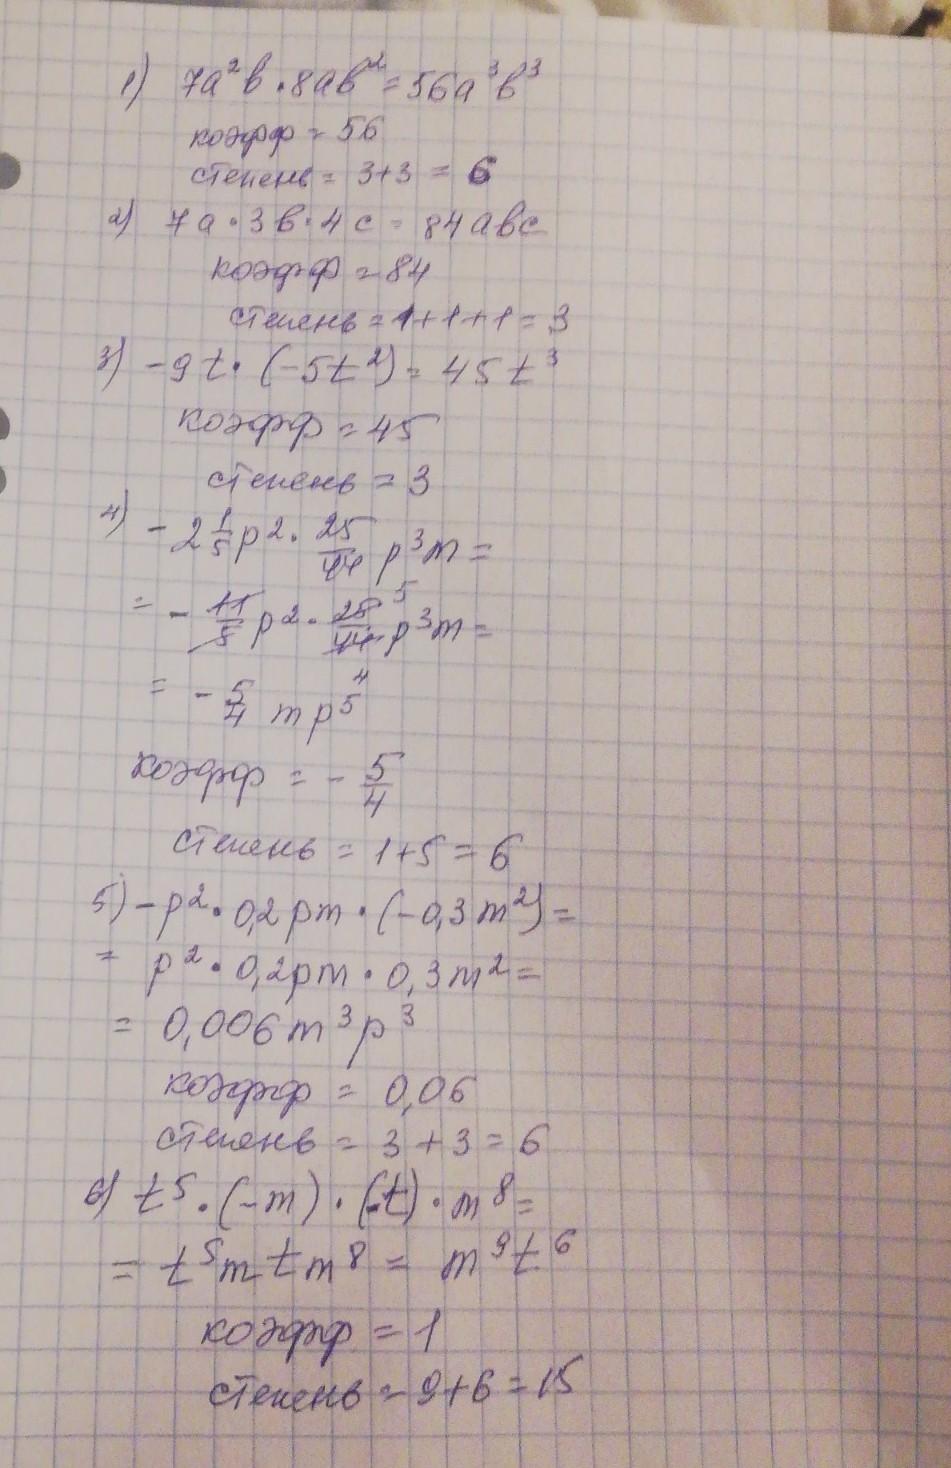 1) 7a²b · 8ab² = 56a³b³
коэфф = 56
степень = 3+3 = 6
2) 7a · 3b · 4c = 84abc
коэфф = 84
степень = 1+1+1 = 3
3) -9t · (-5t²) = 45t³
коэфф = 45
степень = 3
4) -2 1/5 p² · 25/44 p³m =
= - 11/5 p² · 25/44 5 p³m =
4
= - 5/4 mp⁵
коэфф = - 5/4
степень = 1+5 = 6
5) -p² · 0,2pm · (-0,3m²) =
= p² · 0,2pm · 0,3m² =
= 0,006m³p³
коэфф = 0,06
степень = 3+3 = 6
6) t⁵ · (-m) · (-t) · m⁸ =
= t⁵mtm⁸ = m⁹t⁶
коэфф = 1
степень = 9+6 = 15